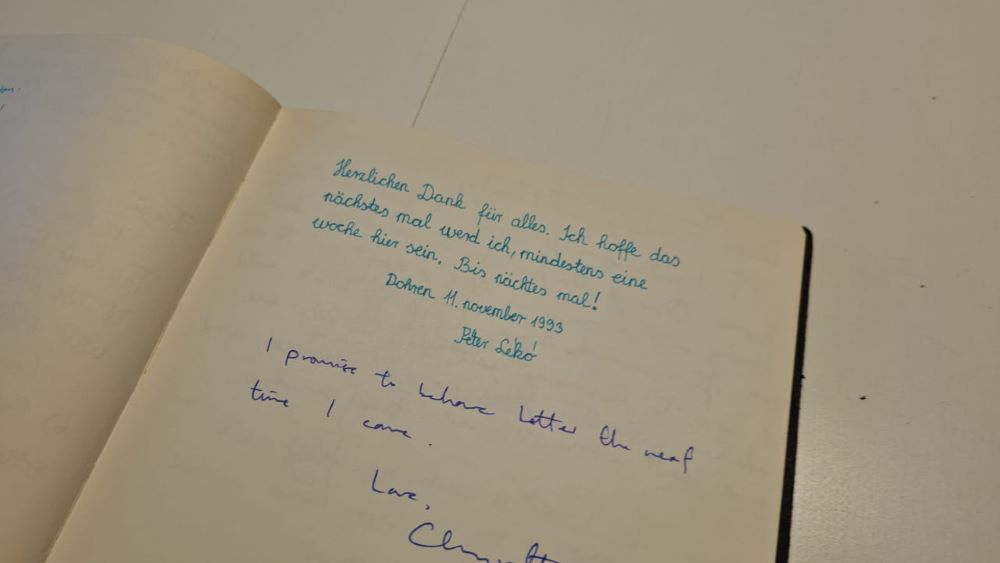 Herzlichen Dank für alles. Ich hoffe das
nächstes mal werd ich, mindestens eine
woche hier sein. Bis nächtes mal!
Dohren 11. november 1993
Péter Lékó
I promise to behave better the next
time I come.
Love,